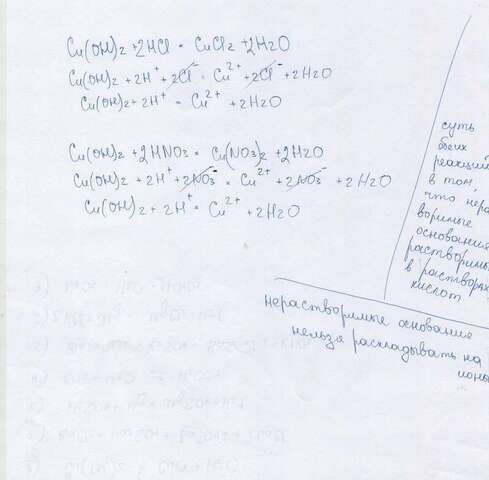 Cu(OH)2 + 2HCl = CuCl2 + 2H2O
Cu(OH)2 + 2H⁺ + 2Cl⁻ = Cu²⁺ + 2Cl⁻ + 2H2O
Cu(OH)2 + 2H⁺ = Cu²⁺ + 2H2O
Cu(OH)2 + 2HNO3 = Cu(NO3)2 + 2H2O
Cu(OH)2 + 2H⁺ + 2NO3⁻ = Cu²⁺ + 2NO3⁻ + 2H2O
Cu(OH)2 + 2H⁺ = Cu²⁺ + 2H2O
суть
обеих
реакций
в том,
что нера
воримые
основания
растворимы
в растворах
кислот
нерастворимые основание
нельзя раскладывать на
ионы